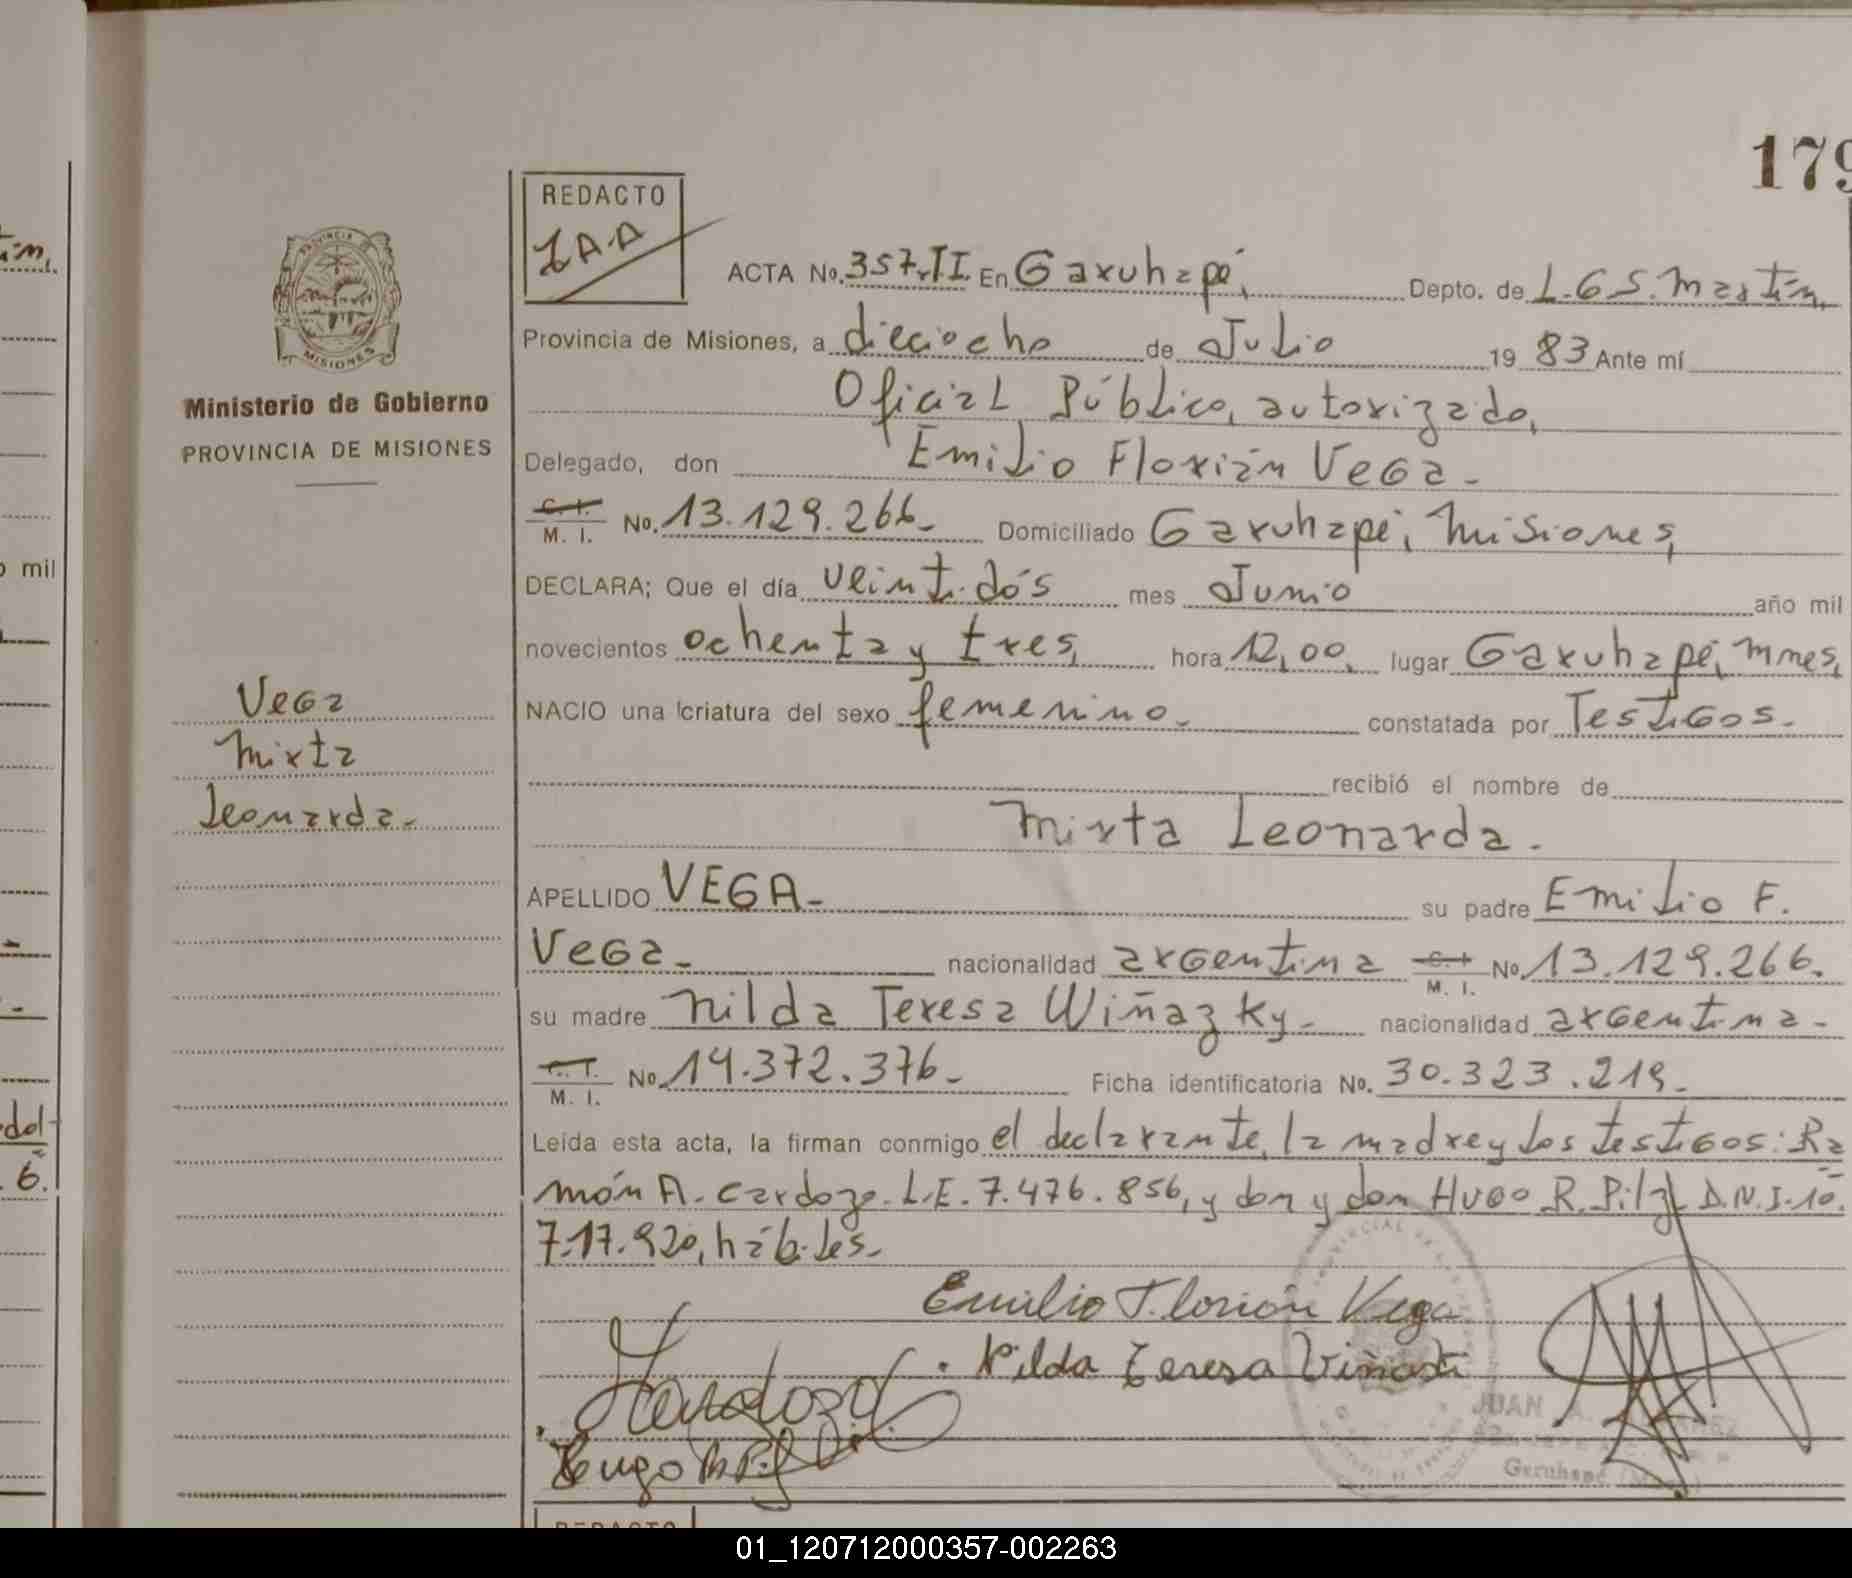 179
REDACTO
J.A.A
ACTA No. 357.T.I. En Garuhapé, Depto. de L.G.S. Martín,
Provincia de Misiones, a dieciocho de Julio 19 83 Ante mí
Oficial Público, autorizado,
Ministerio de Gobierno
PROVINCIA DE MISIONES
Delegado, don Emilio Florián Vega-
C. I. M. I. No. 13.129.266- Domiciliado Garuhapé, Misiones,
DECLARA; Que el día veintidós mes Junio año mil
novecientos ochenta y tres, hora 12,00, lugar Garuhapé, Mnes,
NACIO una criatura del sexo femenino- constatada por Testigos-
recibió el nombre de
Mirta Leonarda.
Vega
Mirta
Leonarda-
APELLIDO VEGA- su padre Emilio F.
Vega- nacionalidad argentina C. I. M. I. No 13.129.266.
su madre Nilda Teresa Wiñazky- nacionalidad argentina-
C. I. M. I. No 14.372.376- Ficha identificatoria No. 30.323.219-
Leída esta acta, la firman conmigo el declarante, la madre y los testigos: Ra
món A. Cardozo- L.E. 7.476.856, y don y don Hugo R. Pilz D.N.I. 10.
717.920, hábiles-
Emilio Florian Vega
Nilda Teresa Viñaski
Cardozo
Hugo R Pilz
JUAN A.
Garuhapé
PROVINCIA DE
MISIONES
mil
6.
REDACTO
01_120712000357-002263